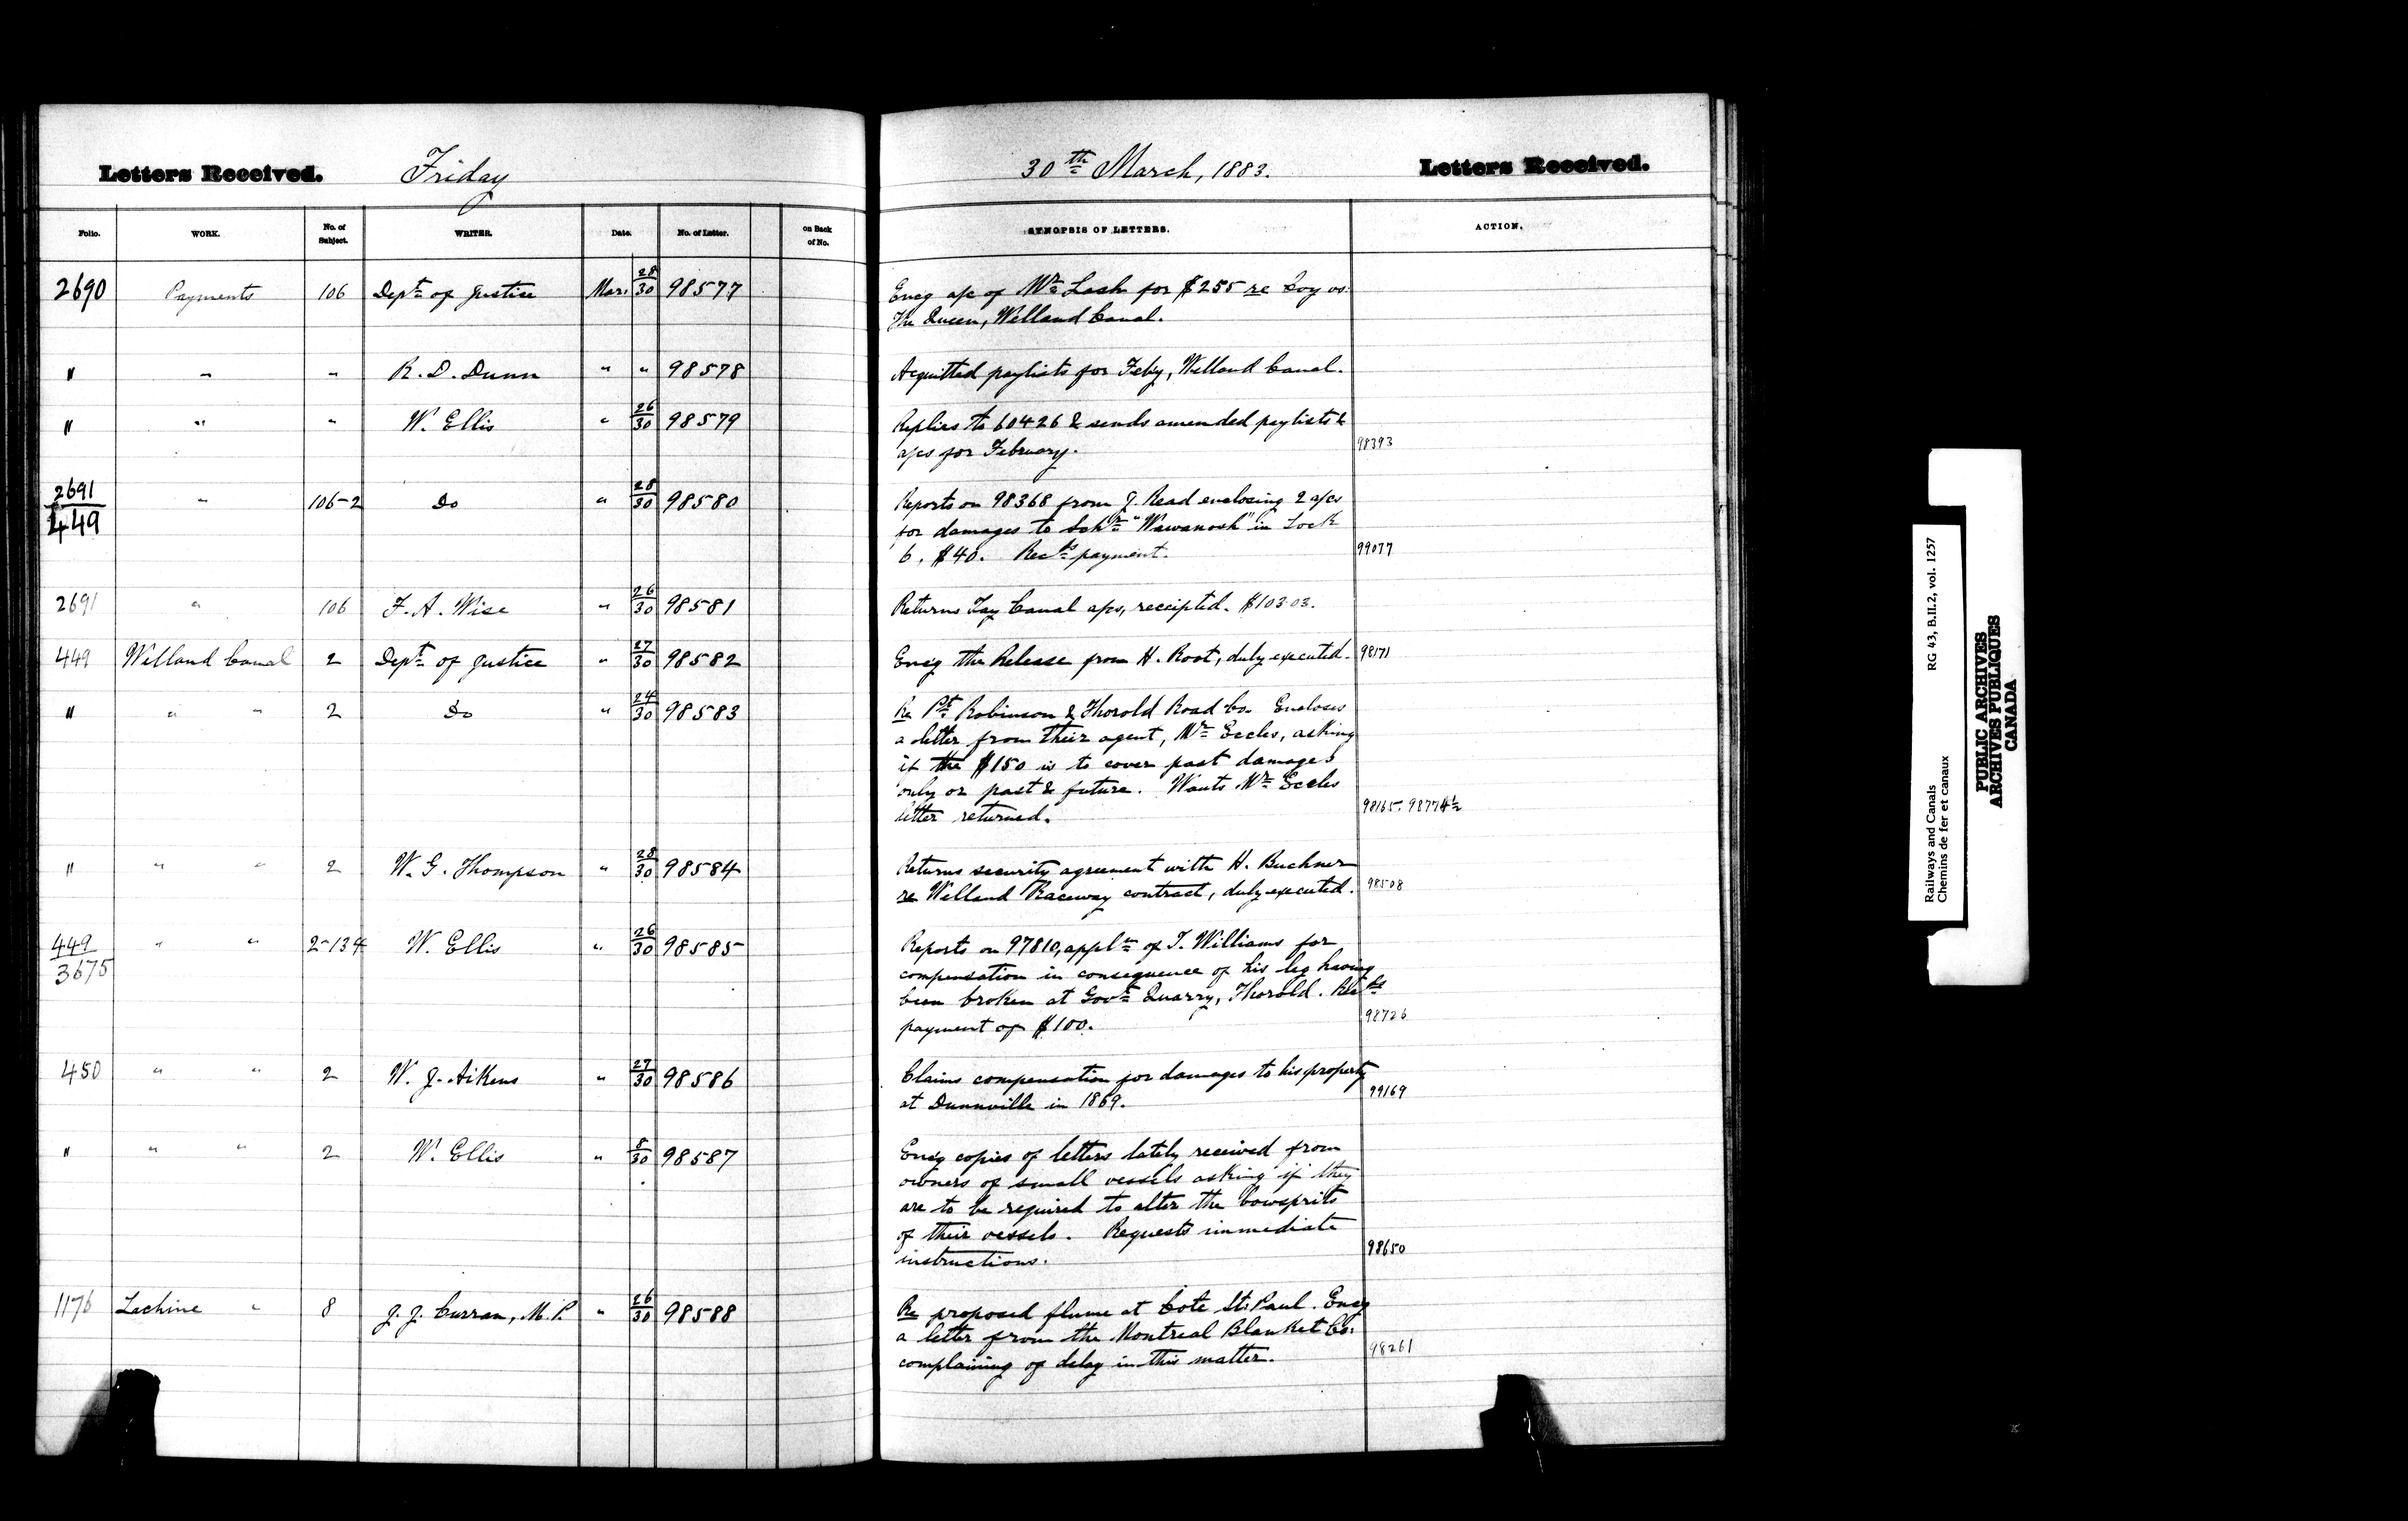 Letters Received. Friday 30th March, 1883. Letters Received.
Folio. WORK. No. of Subject. WRITER. Date. No. of Letter. on Back of No. SYNOPSIS OF LETTERS. ACTION.
2690 Payments 106 Dept of Justice Mar. 28/30 98577 Encg a/c of Mr Lash for $255 re Loy vs.
The Queen, Welland Canal.
" " " R. D. Dunn " " 98578 Acquitted paylists for Feby, Welland Canal.
" " " W. Ellis " 26/30 98579 Replies to 60426 & sends amended paylists &
a/cs for February. 98393
2691/449 " 106-2 Do " 28/30 98580 Reports on 98368 from J. Read enclosing 2 a/cs
for damages to Schr "Wawanosh" in Lock
6. $40. Recds payment. 99077
2691 " 106 F. A. Wise " 26/30 98581 Returns Tay Canal a/cs, receipted. $103.03.
449 Welland Canal 2 Dept of Justice " 27/30 98582 Encg the Release from H. Root, duly executed. 98171
" " " 2 Do " 24/30 98583 Re Pt Robinson & Thorold Road Co. Encloses
a letter from their agent, Mr Eccles, asking
if the $150 is to cover past damages
only or past & future. Wants Mr Eccles
letter returned. 98165. 98774½
" " " 2 W. G. Thompson " 28/30 98584 Returns security agreement with H. Buchner
re Welland Raceway contract, duly executed. 98508
449/3675 " " 2-134 W. Ellis " 26/30 98585 Reports on 97810, appln of T. Williams for
compensation in consequence of his leg having
been broken at Govt Quarry, Thorold. Recds
payment of $100. 98726
450 " " 2 W. J. Aikens " 27/30 98586 Claims compensation for damages to his property
at Dunnville in 1869. 99169
" " " 2 W. Ellis " 8/30 98587 Encg copies of letters lately received from
owners of small vessels asking if they
are to be required to alter the bowsprits
of their vessels. Requests immediate
instructions. 98650
1176 Lachine " 8 J. J. Curran, M.P. " 26/30 98588 Re proposed flume at Cote St. Paul. Encg
a letter from the Montreal Blanket Co.
complaining of delay in this matter. 98261
Railways and Canals RG 43, B.II.2, vol. 1257
Chemins de fer et canaux
PUBLIC ARCHIVES
ARCHIVES PUBLIQUES
CANADA